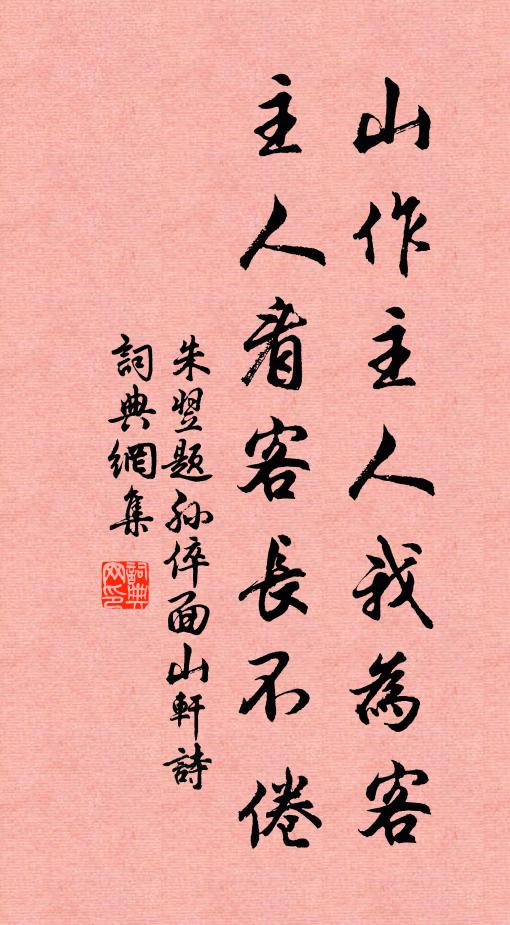 山作主人我為客
主人看客長不倦
朱翌題孙倅面山軒詩
詞典網集
詞典
网印